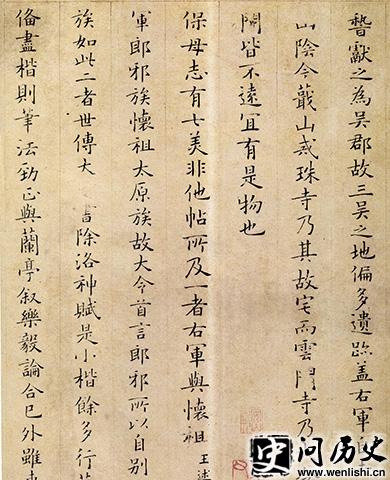 獻之為吳郡故三吳之地偏多遺跡蓋右軍自
山陰今蕺山戒珠寺乃其故宅而雲門寺乃
皆不遠宜有是物也
保母志有七美非他帖所及一者右軍與懷祖王述
軍郎邪族懷祖太原族故大令首言郎邪所以自別
族如此二者世傳大 書除洛神賦是小楷餘多行
俻盡楷則筆法勁正與蘭亭叙樂毅論合已外雖
问历史
www.wenlishi.cn